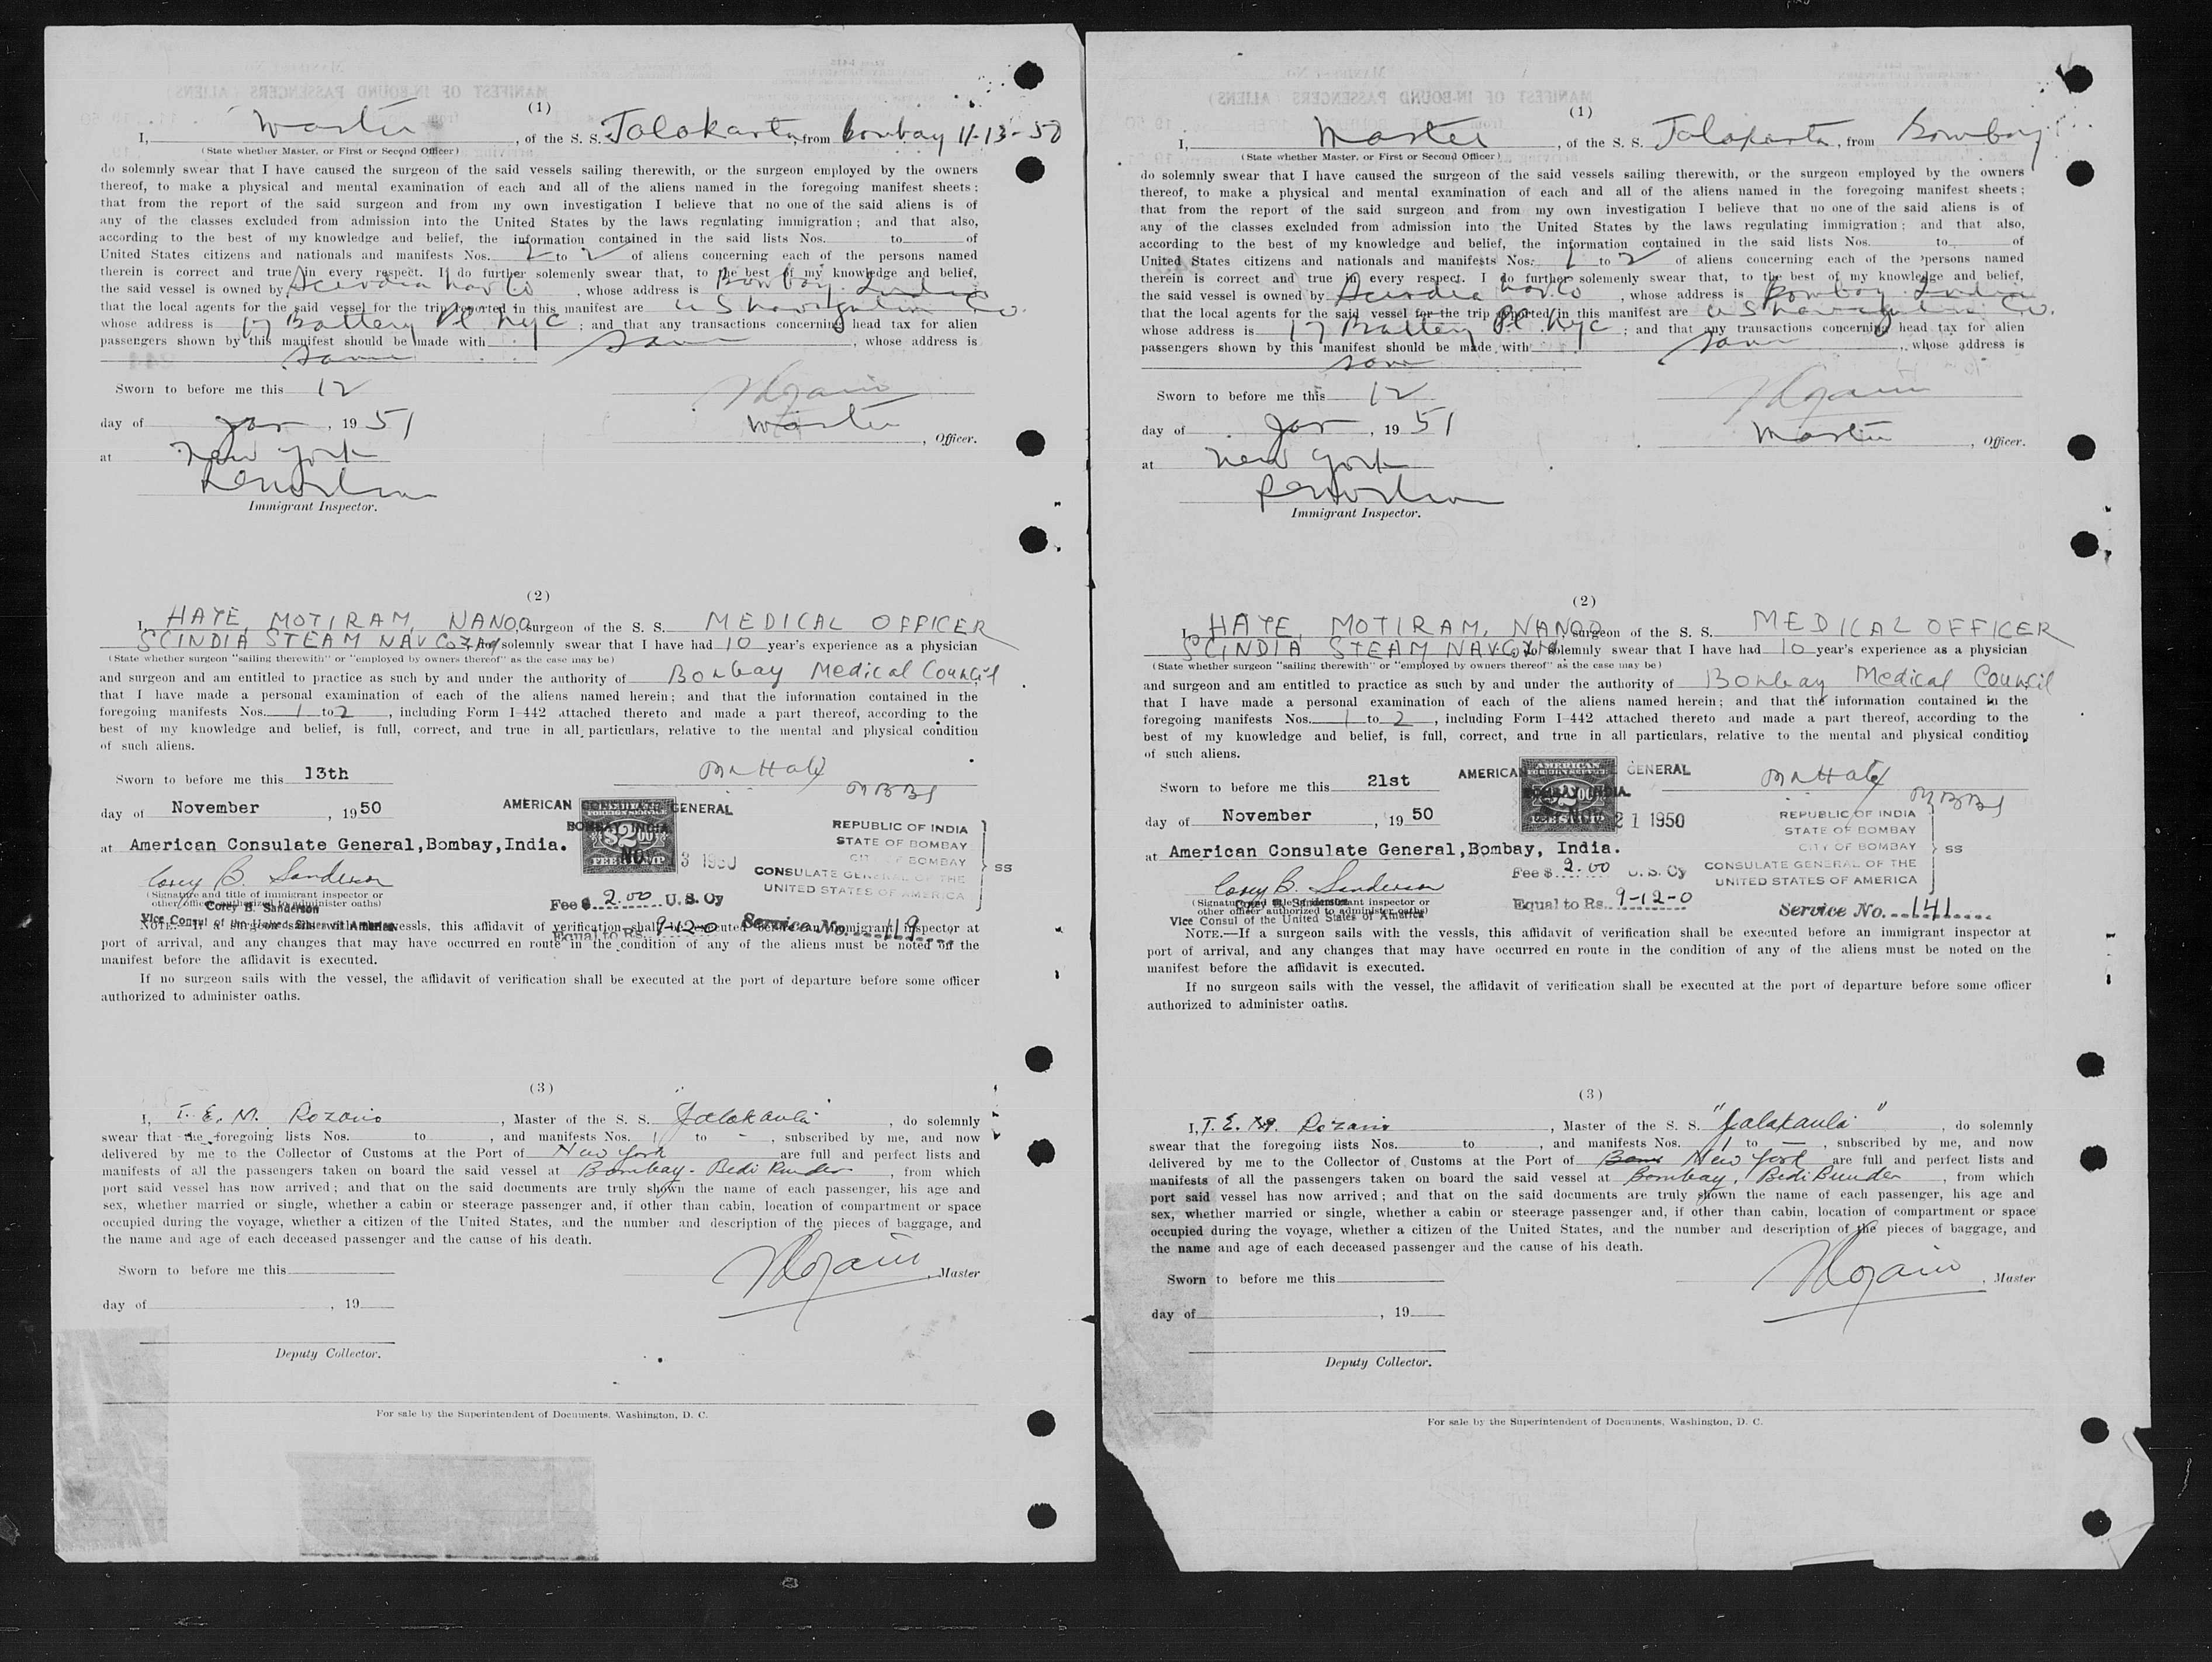 (1)
I, Master, of the S. S. Jalakarta, from Bombay 11-13-50
(State whether Master, or First or Second Officer)
do solemnly swear that I have caused the surgeon of the said vessels sailing therewith, or the surgeon employed by the owners
thereof, to make a physical and mental examination of each and all of the aliens named in the foregoing manifest sheets;
that from the report of the said surgeon and from my own investigation I believe that no one of the said aliens is of
any of the classes excluded from admission into the United States by the laws regulating immigration; and that also,
according to the best of my knowledge and belief, the information contained in the said lists Nos. to of
United States citizens and nationals and manifests Nos. 2 to 2 of aliens concerning each of the persons named
therein is correct and true in every respect. I do further solemenly swear that, to the best of my knowledge and belief,
the said vessel is owned by Scindia Nav Co, whose address is Bombay India
that the local agents for the said vessel for the trip reported in this manifest are U S Navigation Co.
whose address is 17 Battery Pl NYC; and that any transactions concerning head tax for alien
passengers shown by this manifest should be made with same, whose address is
same
Sworn to before me this 12
day of Jan, 19 51
Master, Officer.
at New York
Immigrant Inspector.
(2)
I, HATE, MOTIRAM, NANOO, surgeon of the S. S. MEDICAL OFFICER
SCINDIA STEAM NAV Co solemnly swear that I have had 10 year's experience as a physician
(State whether surgeon "sailing therewith" or "employed by owners thereof" as the case may be)
and surgeon and am entitled to practice as such by and under the authority of Bombay Medical Council
that I have made a personal examination of each of the aliens named herein; and that the information contained in the
foregoing manifests Nos. 1 to 2, including Form I-442 attached thereto and made a part thereof, according to the
best of my knowledge and belief, is full, correct, and true in all particulars, relative to the mental and physical condition
of such aliens.
Sworn to before me this 13th
M N Hate
MBBS
day of November, 19 50
AMERICAN CONSULATE GENERAL
BOMBAY INDIA
FOREIGN SERVICE
$2.00
FEE STAMP
NOV 13 1950
REPUBLIC OF INDIA
STATE OF BOMBAY
CITY OF BOMBAY
CONSULATE GENERAL OF THE
UNITED STATES OF AMERICA
SS
at American Consulate General, Bombay, India.
Corey B. Sanderson
(Signature and title of immigrant inspector or
other officer authorized to administer oaths)
Corey B. Sanderson
Vice Consul of the United States of America
Fee $ 2.00 U.S. Cy
Equal to Rs. 9-12-0
Service No. 119
NOTE.—If a surgeon sails with the vessls, this affidavit of verification shall be executed before an immigrant inspector at
port of arrival, and any changes that may have occurred en route in the condition of any of the aliens must be noted on the
manifest before the affidavit is executed.
If no surgeon sails with the vessel, the affidavit of verification shall be executed at the port of departure before some officer
authorized to administer oaths.
(3)
I, T. E. M. Rozario, Master of the S. S. Jalakarta, do solemnly
swear that the foregoing lists Nos. to, and manifests Nos. 1 to -, subscribed by me, and now
delivered by me to the Collector of Customs at the Port of New York are full and perfect lists and
manifests of all the passengers taken on board the said vessel at Bombay - Bedi Bunder, from which
port said vessel has now arrived; and that on the said documents are truly shown the name of each passenger, his age and
sex, whether married or single, whether a cabin or steerage passenger and, if other than cabin, location of compartment or space
occupied during the voyage, whether a citizen of the United States, and the number and description of the pieces of baggage, and
the name and age of each deceased passenger and the cause of his death.
Sworn to before me this
Rozario, Master
day of, 19
Deputy Collector.
For sale by the Superintendent of Documents, Washington, D. C.
(1)
I, Master, of the S. S. Jalakarta, from Bombay
(State whether Master, or First or Second Officer)
do solemnly swear that I have caused the surgeon of the said vessels sailing therewith, or the surgeon employed by the owners
thereof, to make a physical and mental examination of each and all of the aliens named in the foregoing manifest sheets;
that from the report of the said surgeon and from my own investigation I believe that no one of the said aliens is of
any of the classes excluded from admission into the United States by the laws regulating immigration; and that also,
according to the best of my knowledge and belief, the information contained in the said lists Nos. to of
United States citizens and nationals and manifests Nos. 1 to 2 of aliens concerning each of the persons named
therein is correct and true in every respect. I do further solemenly swear that, to the best of my knowledge and belief,
the said vessel is owned by Scindia Nav Co, whose address is Bombay India
that the local agents for the said vessel for the trip reported in this manifest are U S Navigation Co.
whose address is 17 Battery Pl NYC; and that any transactions concerning head tax for alien
passengers shown by this manifest should be made with same, whose address is
same
Sworn to before me this 12
day of Jan, 19 51
Master, Officer.
at New York
Immigrant Inspector.
(2)
I, HATE, MOTIRAM, NANOO, surgeon of the S. S. MEDICAL OFFICER
SCINDIA STEAM NAV Co solemnly swear that I have had 10 year's experience as a physician
(State whether surgeon "sailing therewith" or "employed by owners thereof" as the case may be)
and surgeon and am entitled to practice as such by and under the authority of Bombay Medical Council
that I have made a personal examination of each of the aliens named herein; and that the information contained in the
foregoing manifests Nos. 1 to 2, including Form I-442 attached thereto and made a part thereof, according to the
best of my knowledge and belief, is full, correct, and true in all particulars, relative to the mental and physical condition
of such aliens.
Sworn to before me this 21st
M N Hate
MBBS
day of November, 19 50
AMERICAN GENERAL
BOMBAY INDIA
NOV 21 1950
REPUBLIC OF INDIA
STATE OF BOMBAY
CITY OF BOMBAY
CONSULATE GENERAL OF THE
UNITED STATES OF AMERICA
SS
at American Consulate General, Bombay, India.
Corey B. Sanderson
(Signature and title of immigrant inspector or
other officer authorized to administer oaths)
Corey B. Sanderson
Vice Consul of the United States of America
Fee $ 2.00 U.S. Cy
Equal to Rs. 9-12-0
Service No. 141
NOTE.—If a surgeon sails with the vessls, this affidavit of verification shall be executed before an immigrant inspector at
port of arrival, and any changes that may have occurred en route in the condition of any of the aliens must be noted on the
manifest before the affidavit is executed.
If no surgeon sails with the vessel, the affidavit of verification shall be executed at the port of departure before some officer
authorized to administer oaths.
(3)
I, T. E. M. Rozario, Master of the S. S. "Jalakarta", do solemnly
swear that the foregoing lists Nos. to, and manifests Nos. 1 to —, subscribed by me, and now
delivered by me to the Collector of Customs at the Port of New York are full and perfect lists and
manifests of all the passengers taken on board the said vessel at Bombay, Bedi Bunder, from which
port said vessel has now arrived; and that on the said documents are truly shown the name of each passenger, his age and
sex, whether married or single, whether a cabin or steerage passenger and, if other than cabin, location of compartment or space
occupied during the voyage, whether a citizen of the United States, and the number and description of the pieces of baggage, and
the name and age of each deceased passenger and the cause of his death.
Sworn to before me this
Rozario, Master
day of, 19
Deputy Collector.
For sale by the Superintendent of Documents, Washington, D. C.